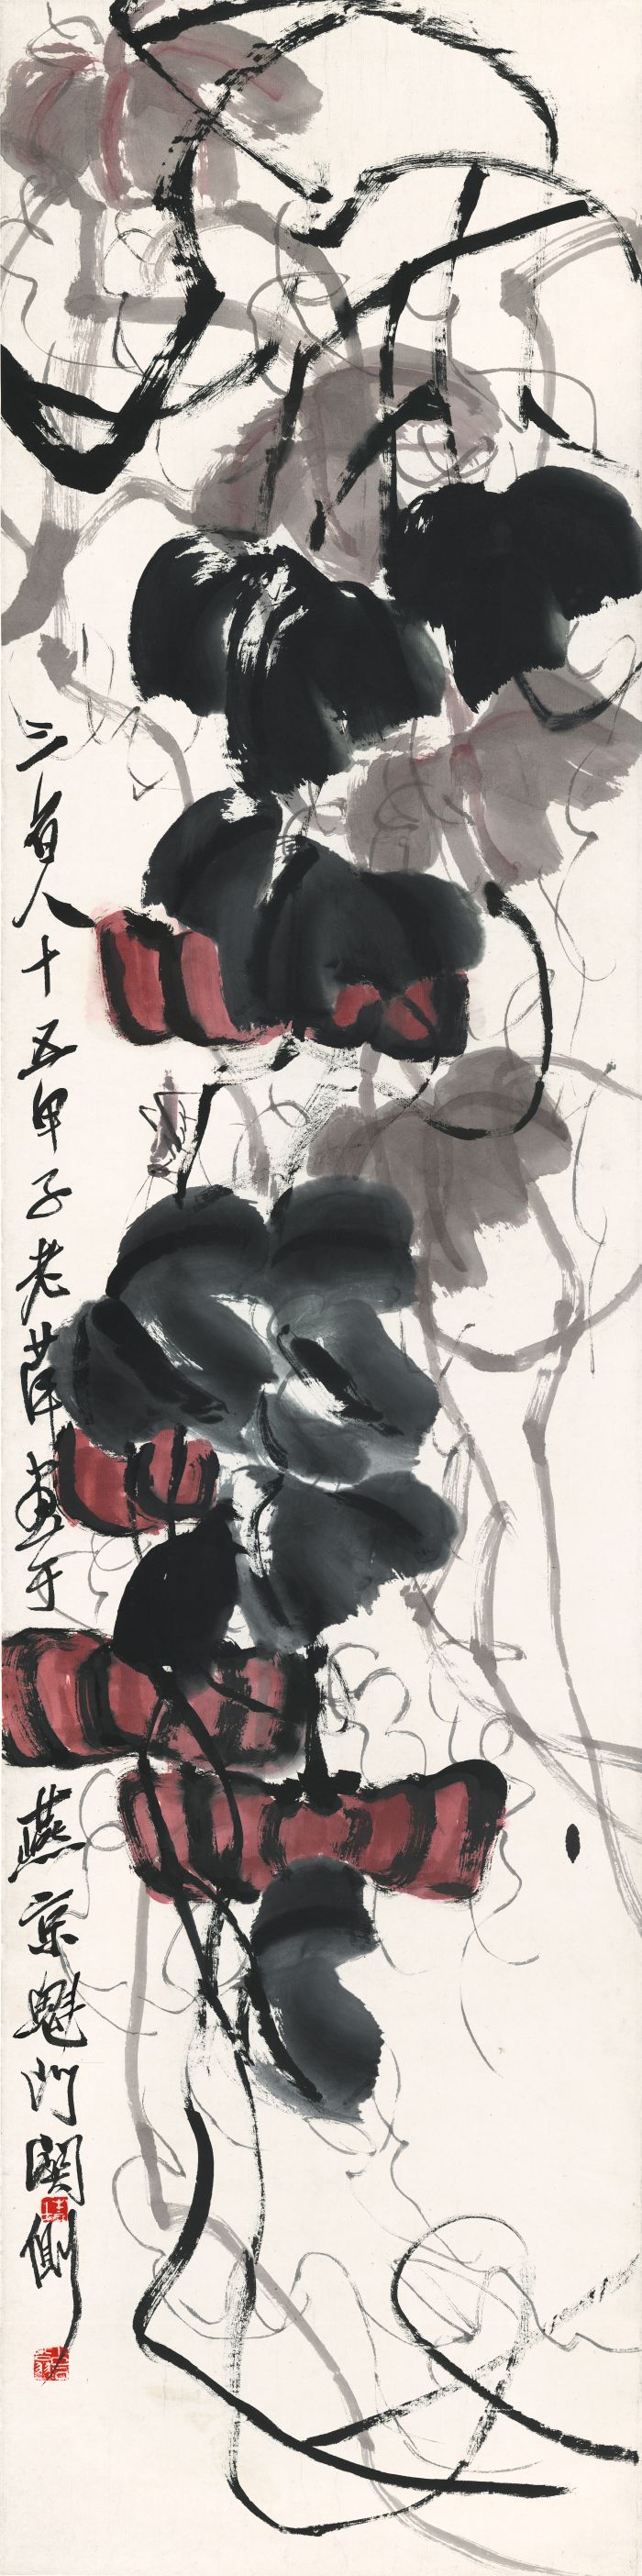 三百八十五甲子老萍画于燕京魁門関側